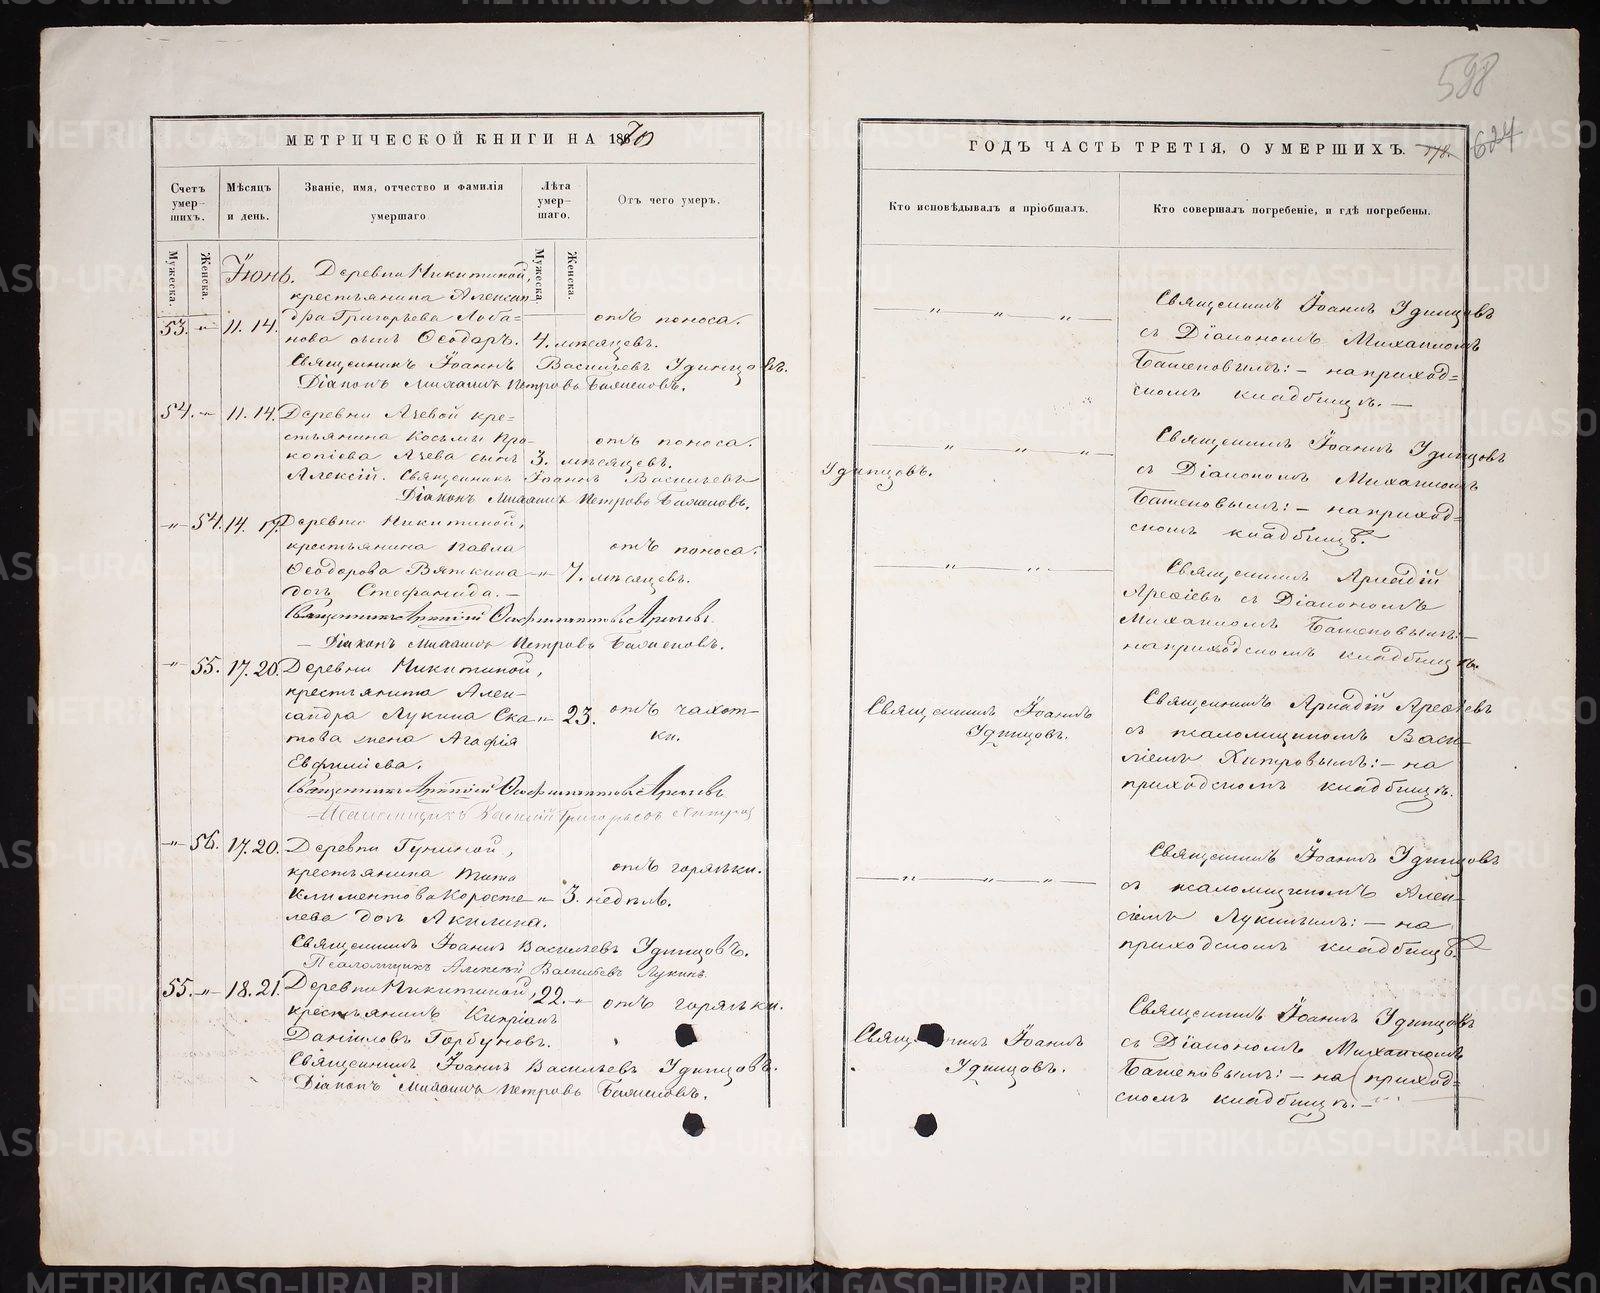 598
МЕТРИЧЕСКОЙ КНИГИ НА 1870
Счетъ умер-шихъ.
Мѣсяцъ и день.
Званіе, имя, отчество и фамилія умершаго
Лѣта умер-шаго.
Отъ чего умеръ.
Мужеска.
Женска.
Мужеска.
Женска.
Іюнь. Деревни Никитиной,
крестьянина Алексан-
53. -"- 11. 14. дра Григорьева Лоба- отъ поноса.
нова сынъ Ѳеодоръ. 4. мѣсяцевъ.
Священникъ Іоаннъ Васильевъ Удинцовъ.
Діаконъ Михаилъ Петровъ Баженовъ.
54. -"- 11. 14. Деревни Ячевой кре-
стьянина Косьмы Про- отъ поноса.
копіева Ячева сынъ 3. мѣсяцевъ.
Алексій. Священникъ Іоаннъ Васильевъ Удинцовъ.
Діаконъ Михаилъ Петровъ Баженовъ.
-"- 54. 14. 17. Деревни Никитиной,
крестьянина Павла отъ поноса.
Ѳеодорова Вяткина -"- 7. мѣсяцевъ.
дочь Стефанида. —
Священникъ Аркадій Арефіевъ.
— Діаконъ Михаилъ Петровъ Баженовъ.
-"- 55. 17. 20. Деревни Никитиной,
крестьянина Алек-
сандра Лукина Ска- -"- 23. отъ чахот-
това жена Агафія ки.
Евфиміева.
Священникъ Аркадій Арефіевъ
— Псаломщикъ Василій Григорьевъ Хитровъ
-"- 56. 17. 20. Деревни Гуниной,
крестьянина Тита отъ горячки.
Климентова Коросте- -"- 3. недѣль.
лева дочь Акилина.
Священникъ Іоаннъ Васильевъ Удинцовъ.
Псаломщикъ Алексѣй Васильевъ Лукинъ.
55. -"- 18. 21. Деревни Никитиной, 22. -"- отъ горячки.
крестьянинъ Кипріанъ
Даніиловъ Горбуновъ.
Священникъ Іоаннъ Васильевъ Удинцовъ.
Діаконъ Михаилъ Петровъ Баженовъ.
ГОДЪ ЧАСТЬ ТРЕТІЯ, О УМЕРШИХЪ.
624
Кто исповѣдывалъ и пріобщалъ.
Кто совершалъ погребеніе, и гдѣ погребены.
— " — " — " —
Священникъ Іоаннъ Удинцовъ
съ Діакономъ Михаиломъ
Баженовымъ: — на приход-
скомъ кладбищѣ. —
— " — " — " —
Священникъ Іоаннъ Удинцовъ
съ Діакономъ Михаиломъ
Баженовымъ: — на приход-
скомъ кладбищѣ.
— " — " —
Священникъ Аркадій
Арефіевъ съ Діакономъ
Михаиломъ Баженовымъ: —
на приходскомъ кладбищѣ.
Священникъ Іоаннъ
Удинцовъ.
Священникъ Аркадій Арефіевъ
съ псаломщикомъ Васи-
ліемъ Хитровымъ: — на
приходскомъ кладбищѣ.
— " — " — " —
Священникъ Іоаннъ Удинцовъ
съ псаломщикомъ Алек-
сіемъ Лукинымъ: — на
приходскомъ кладбищѣ.
Священникъ Іоаннъ
Удинцовъ.
Священникъ Іоаннъ Удинцовъ
съ Діакономъ Михаиломъ
Баженовымъ: — на приход-
скомъ кладбищѣ. —
METRIKI.GASO-URAL.RU